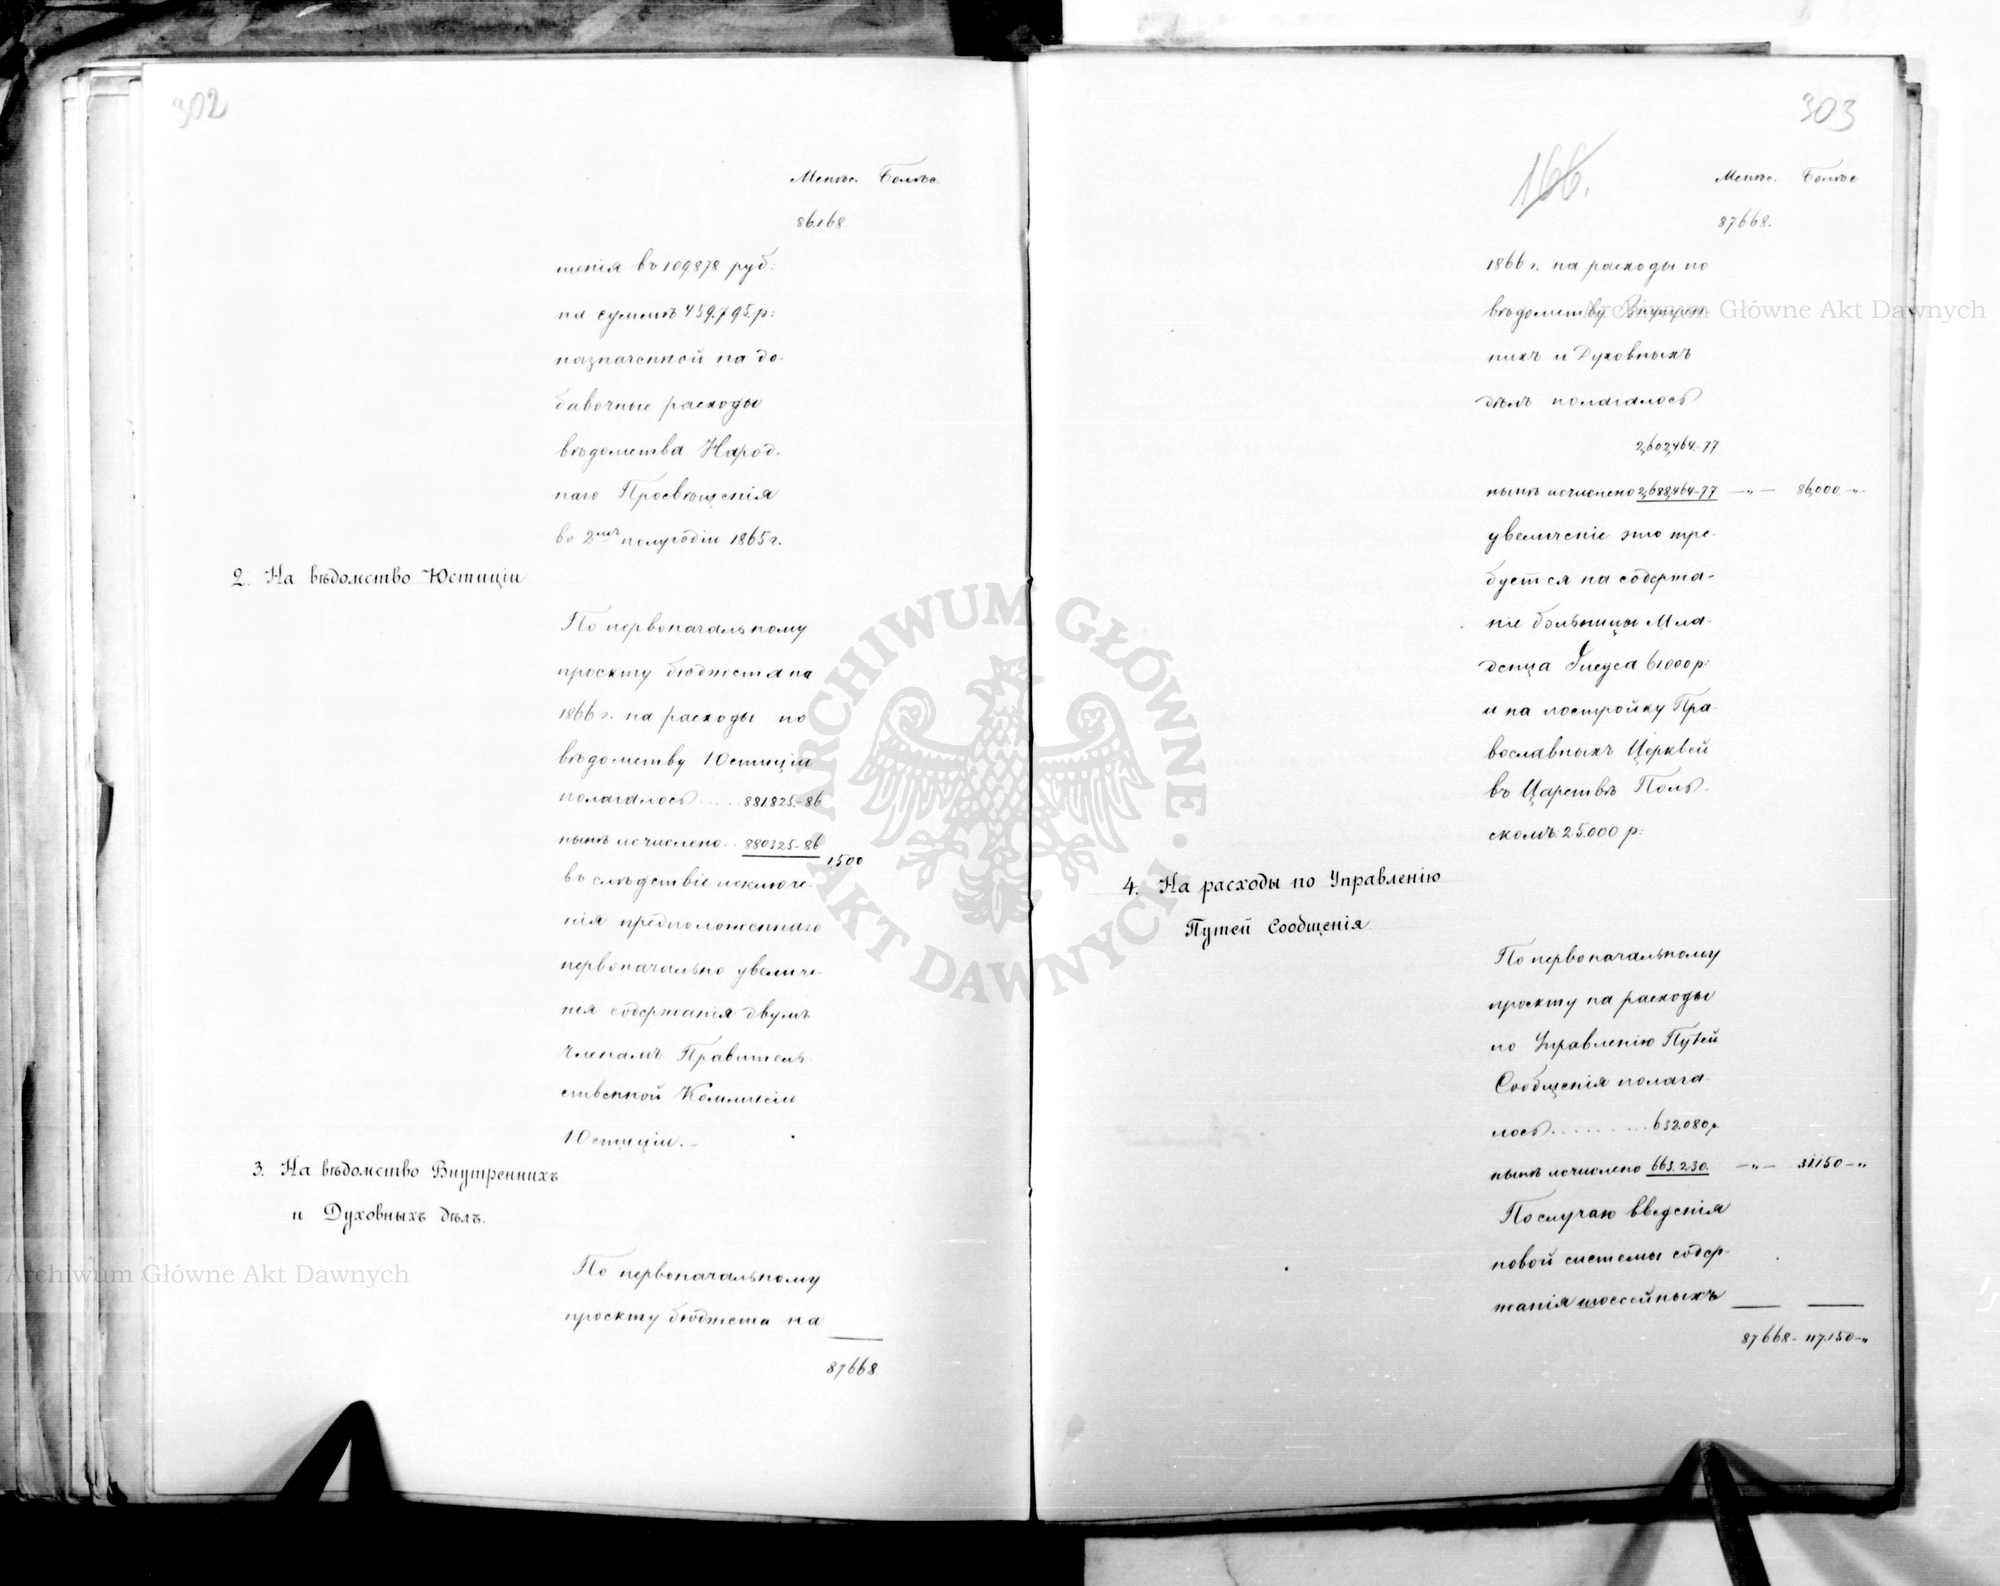 302
Менѣе. Болѣе.
86.168.
шенія въ 109878 руб:
на суммѣ 459.795.р:
назначенной на до-
бавочные расходы
вѣдомства Народ-
наго Просвѣщенія
во 2мъ полугодіи 1865 г.
2. На вѣдомство Юстиціи
По первоначальному
проэкту бюджета на
1866 г. на расходы по
вѣдомству Юстиціи
полагалось .... 881.825.-86
нынѣ исчислено .. 880325-86
1.500
въ слѣдствіе исключе-
нія предположеннаго
первоначально увеличе-
нія содержанія двумъ
членамъ Правитель-
ственной Коммисіи
Юстиціи.-
3. На вѣдомство Внутреннихъ
и Духовныхъ дѣлъ.
По первоначальному
проэкту бюджета на
87668.
303
166.
Менѣе. Болѣе
87668.
1866 г. на расходы по
вѣдомству Внутрен-
нихъ и Духовныхъ
дѣлъ полагалось
2,602,464-77
нынѣ исчислено 2,688,464-77 -"- 86,000-"-
увеличеніе это тре-
буется на содержа-
ніе больницы Мла-
денца Іисуса 61000 р:
и на постройку Пра-
вославныхъ Церквей
въ Царствѣ Поль-
скомъ: 25.000 р:
4. На расходы по Управленію
Путей Сообщенія
По первоначальному
проэкту на расходы
по Управленію Путей
Сообщенія полага-
лось ......... 632.080 р.
нынѣ исчислено 663.230. -"- 31.150-"
По случаю введенія
новой системы содер-
жанія шоссейныхъ
87668- 117.150-"
Archiwum Główne Akt Dawnych
ARCHIWUM GŁÓWNE · AKT DAWNYCH ·
Archiwum Główne Akt Dawnych